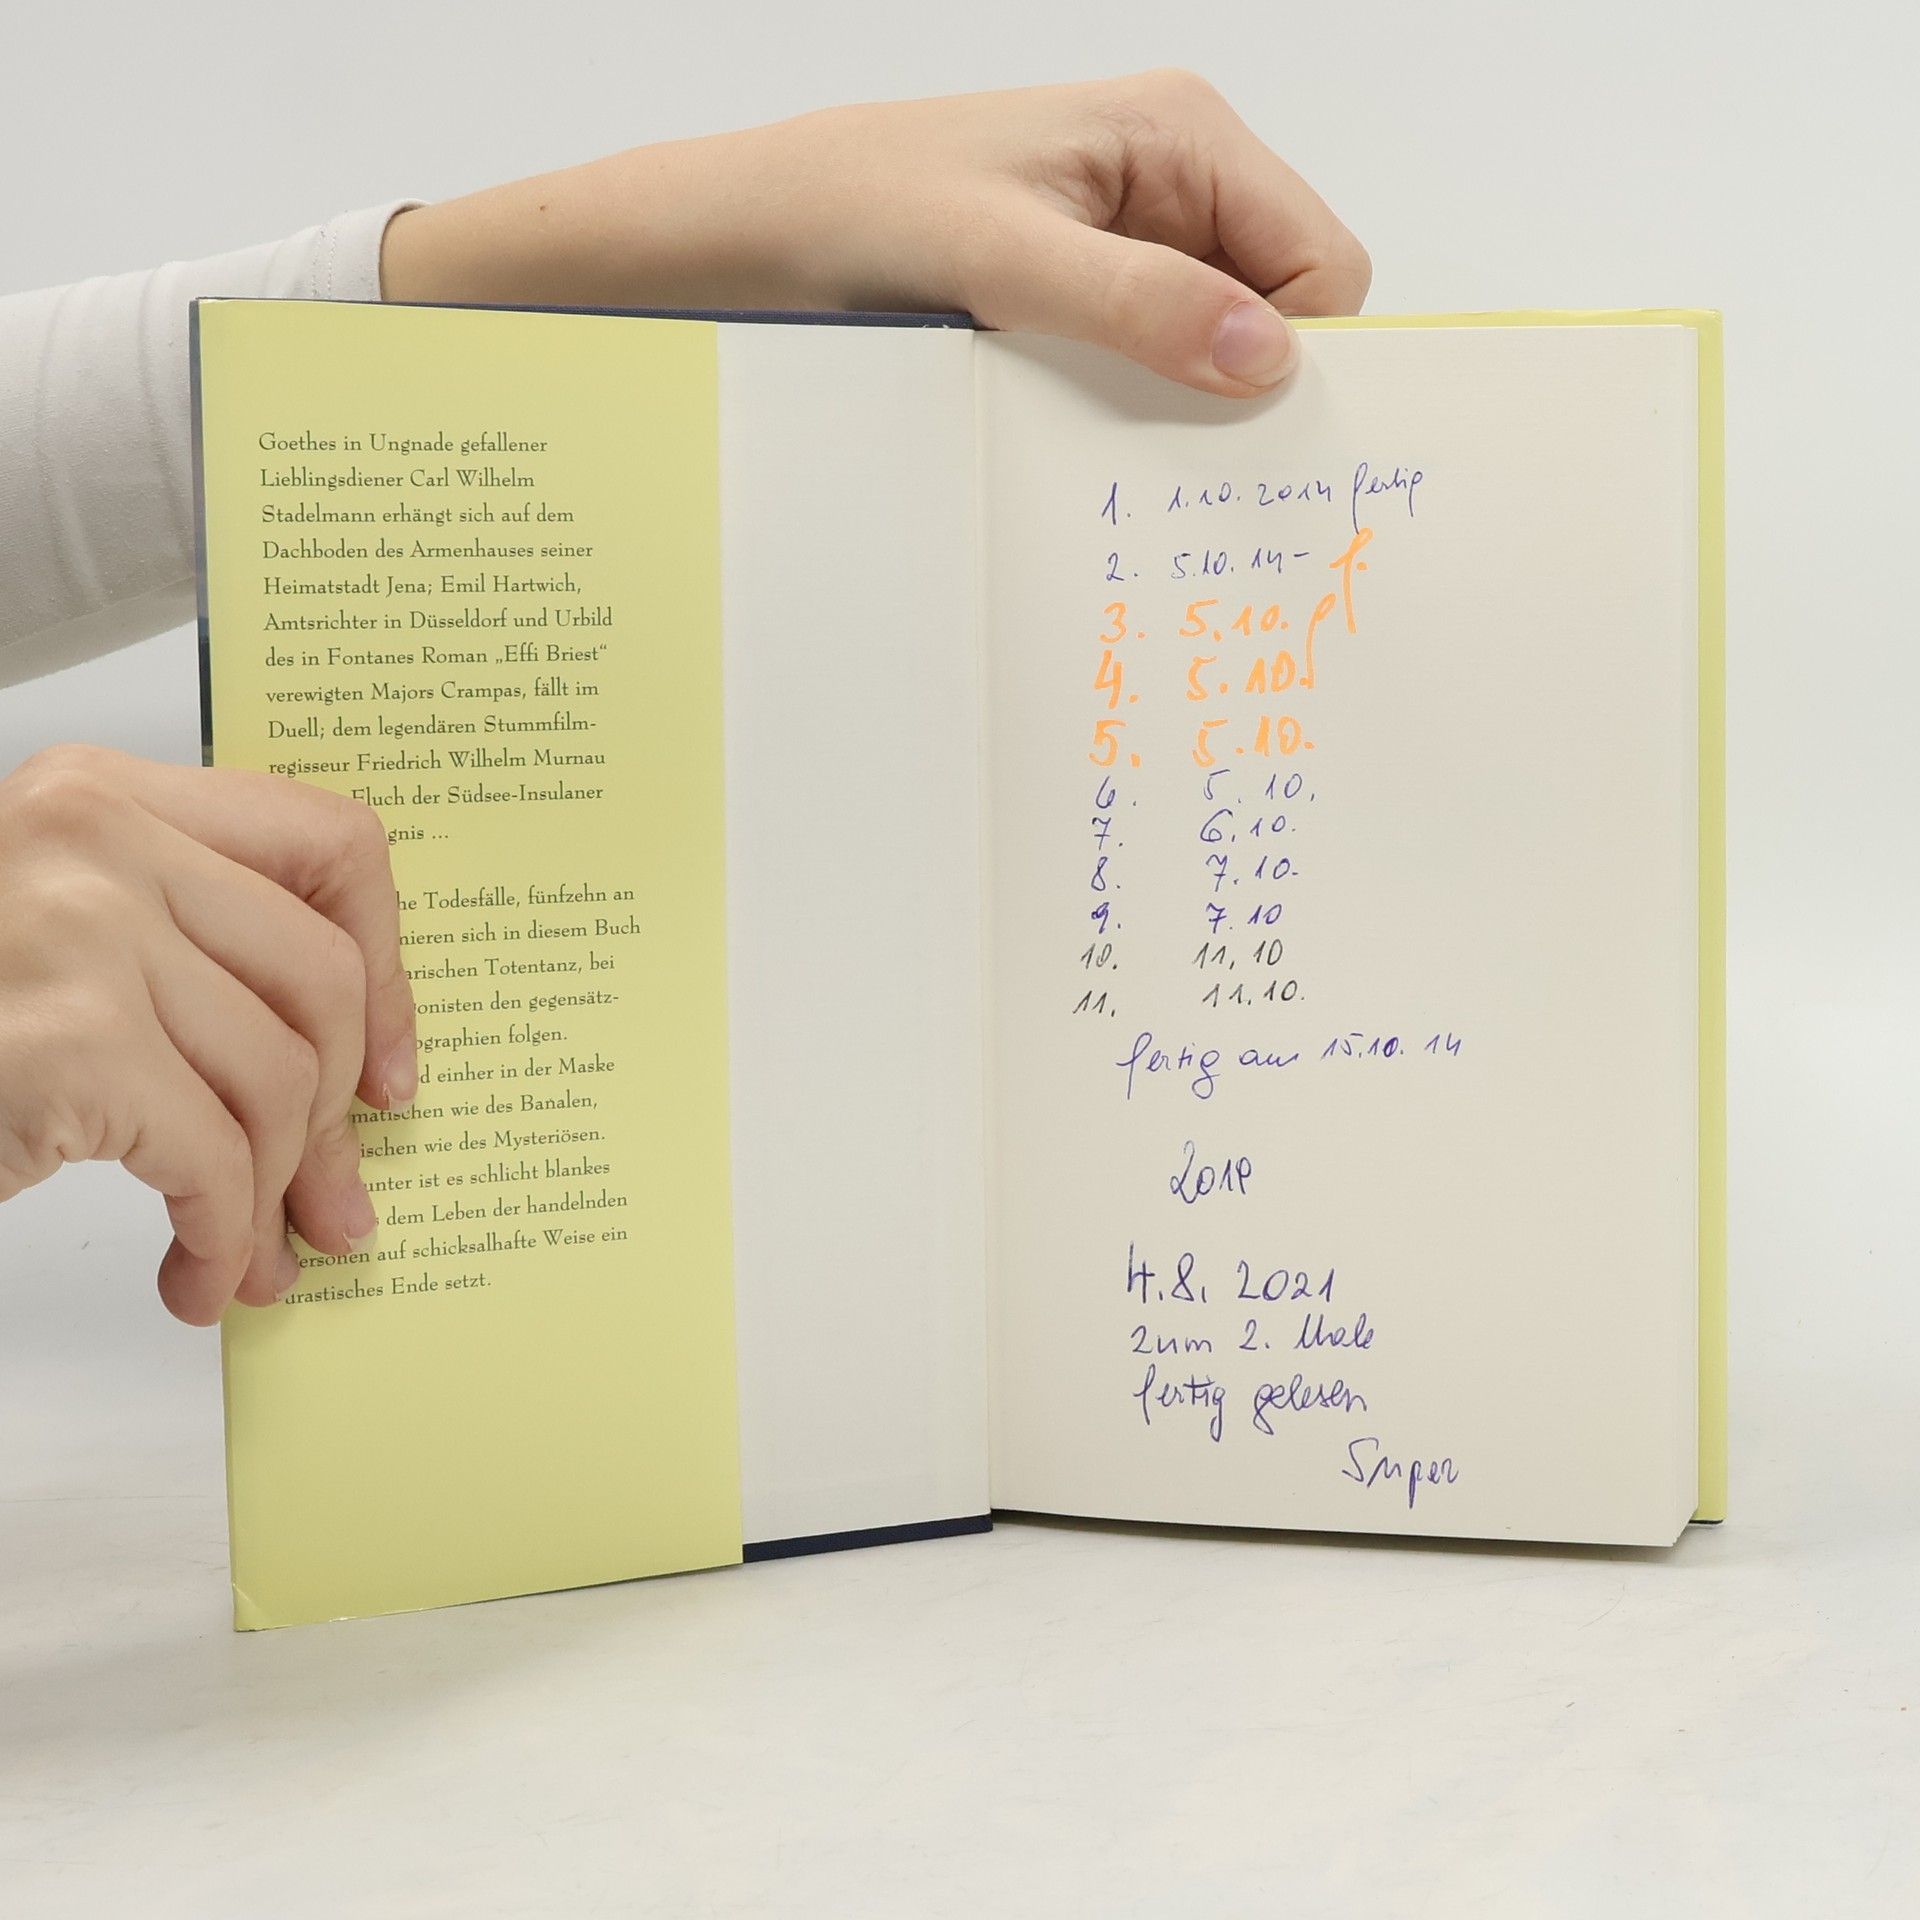 Goethes in Ungnade gefallener
Lieblingsdiener Carl Wilhelm
Stadelmann erhängt sich auf dem
Dachboden des Armenhauses seiner
Heimatstadt Jena; Emil Hartwich,
Amtsrichter in Düsseldorf und Urbild
des in Fontanes Roman „Effi Briest“
verewigten Majors Crampas, fällt im
Duell; dem legendären Stummfilm-
regisseur Friedrich Wilhelm Murnau
Fluch der Südsee-Insulaner
gnis ...
he Todesfälle, fünfzehn an
nieren sich in diesem Buch
arischen Totentanz, bei
onisten den gegensätz-
ographien folgen.
d einher in der Maske
matischen wie des Banalen,
ischen wie des Mysteriösen.
unter ist es schlicht blankes
s dem Leben der handelnden
Personen auf schicksalhafte Weise ein
drastisches Ende setzt.
1. 1.10.2014 fertig
2. 5.10.14- f.
3. 5.10. f
4. 5.10.
5. 5.10.
6. 5.10.
7. 6.10.
8. 7.10.
9. 7.10
10. 11.10
11. 11.10.
fertig am 15.10.14
4.8. 2021
zum 2. Male
fertig gelesen
Super